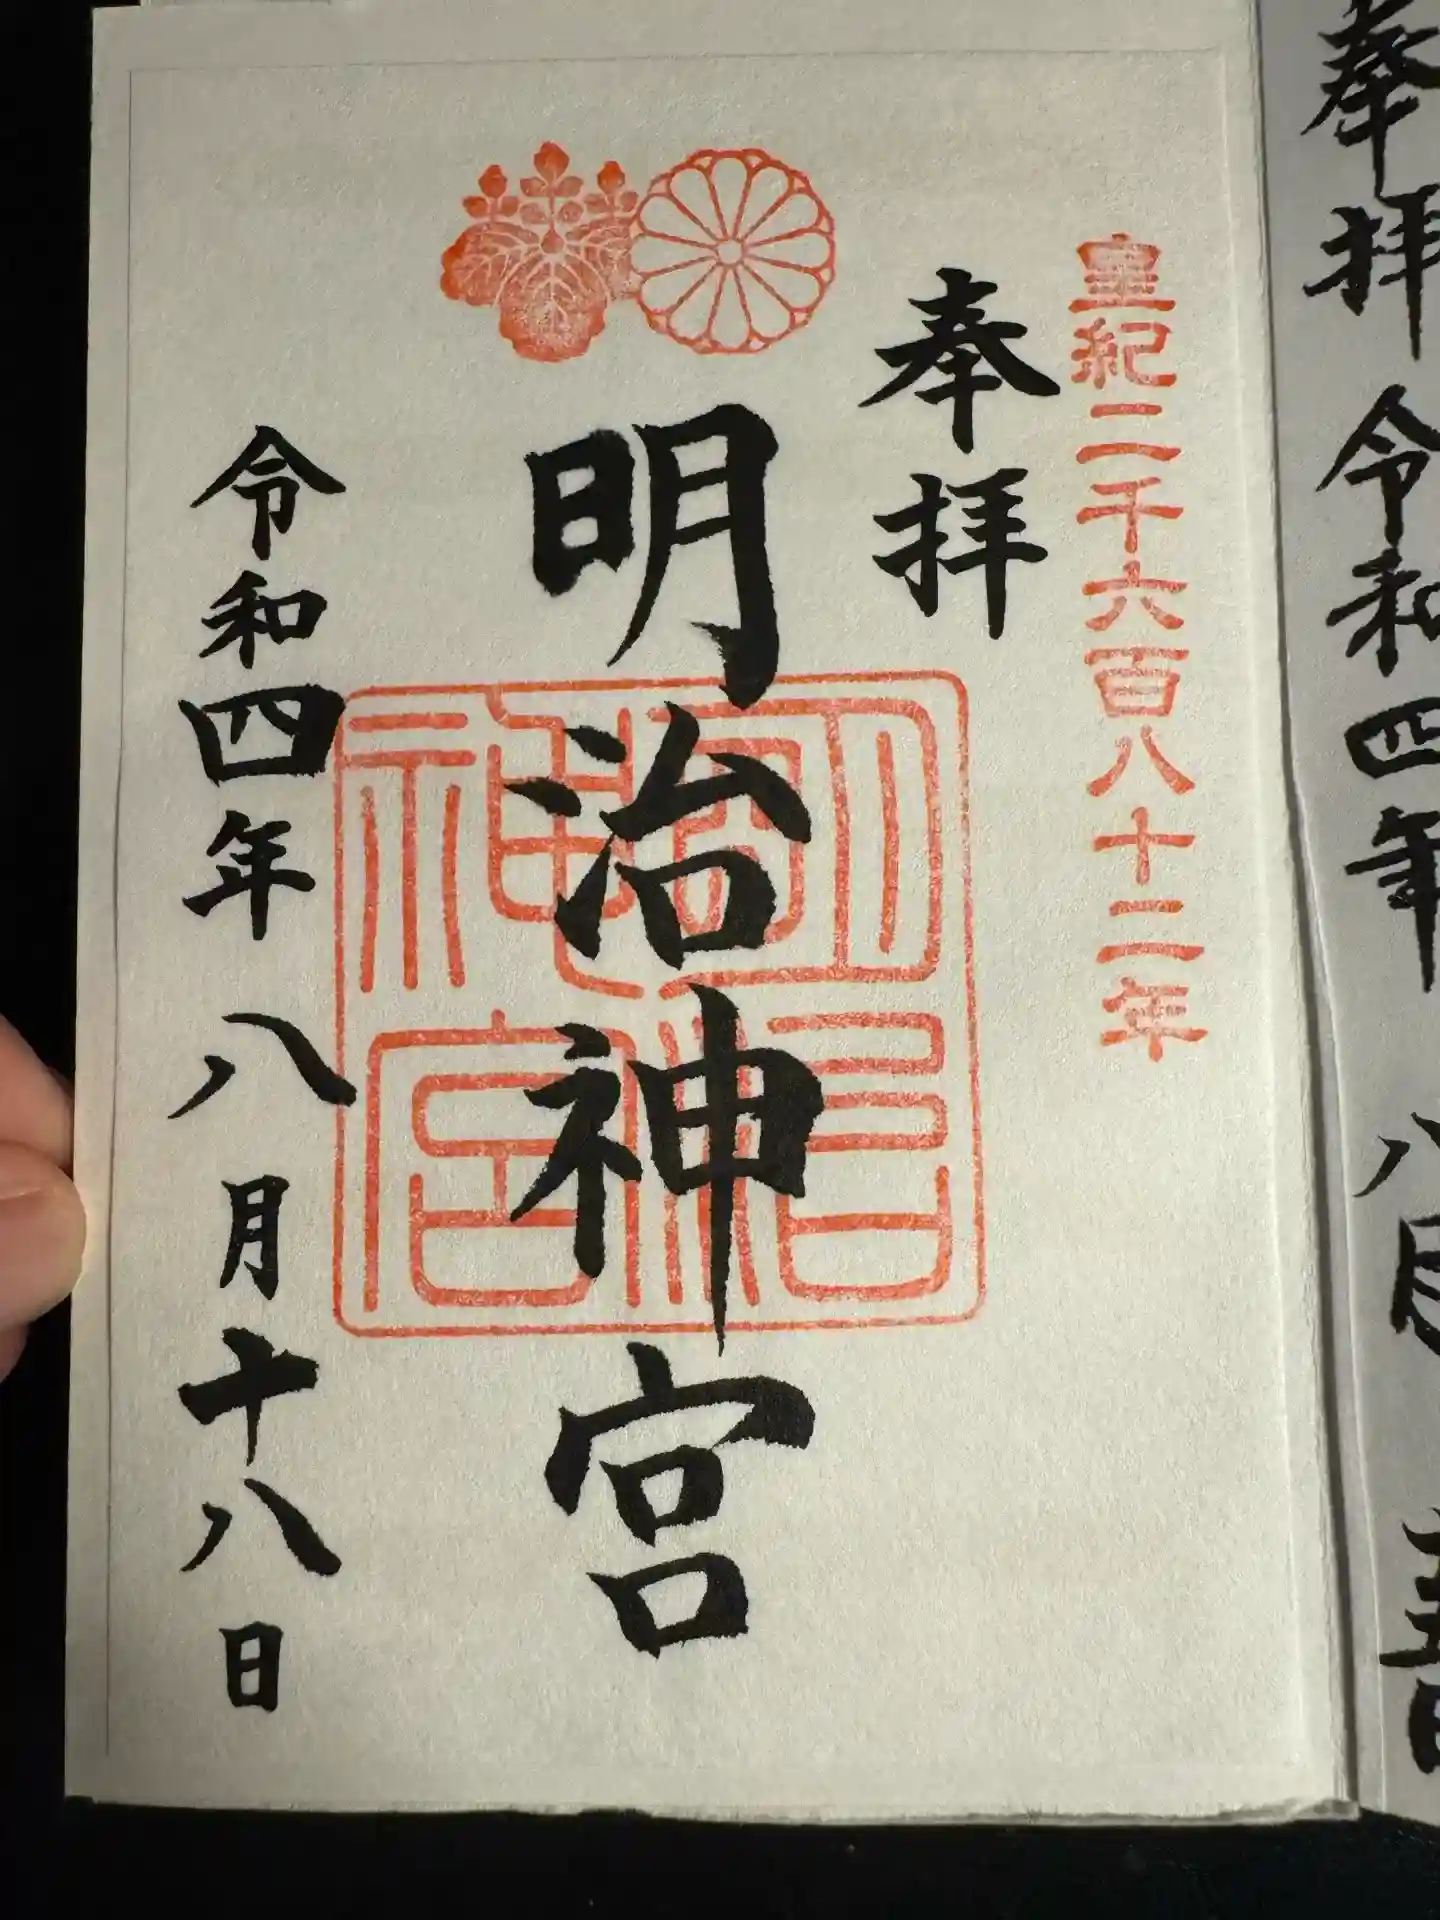 奉拝 令和四年 八月
皇紀二千六百八十二年
奉拝
明治神宮
令和四年 八月十八日